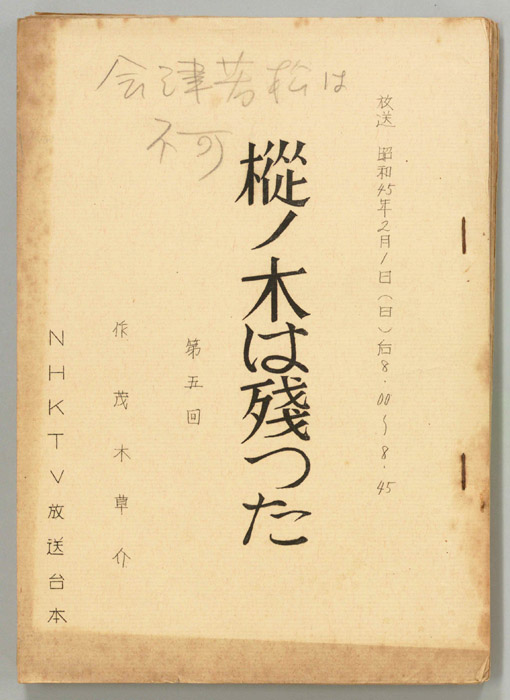 放送 昭和45年2月1日(日)后8.00〜8.45
会津若松は
不可
樅ノ木は残つた
第五回
作 茂木草介
NHKTV放送台本